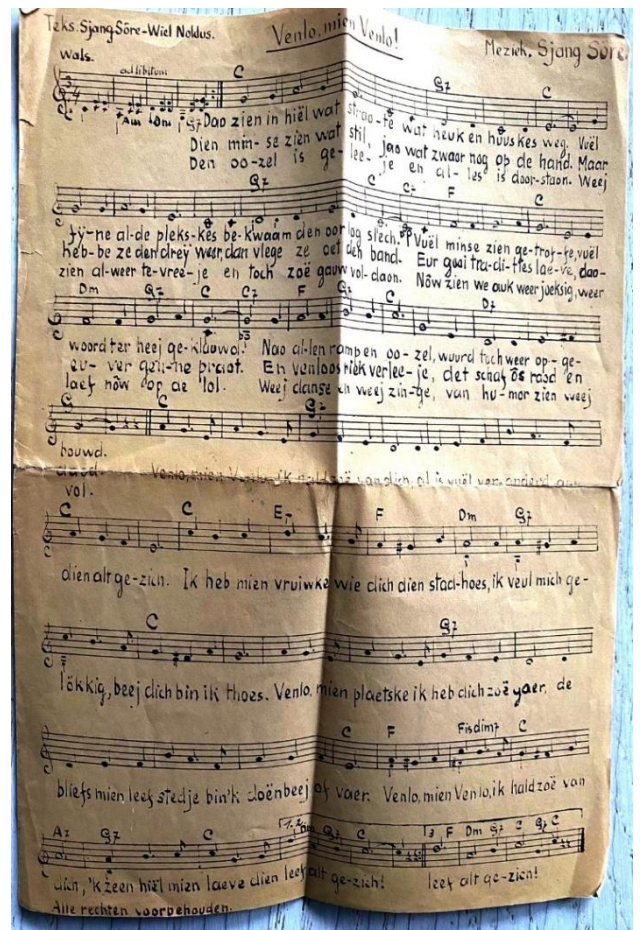 Teks. Sjang Söre-Wiel Noldus.
Venlo, mien Venlo!
Meziek. Sjang Söre.
wals.
ad libitum
C G7 C
Am Dm G7
Dao zien in hiël wat straote wat heuk en huuskes weg. Vuël
Dien min-se zien wat stil, jao wat zwaor nog op de hand. Maar
Den oo-zel is ge-lee-je en al-les is door-staon. Weej
G7 C C7 F C
fy-ne al-de pleks-kes be-kwaam den oorlog slech. Vuël minse zien ge-trof-fe, vuël
heb-be ze den dreý weer, dan vlege ze oet den band. Eur gooi tra-di-ties lae-ve, dao-
zien al-weer te-vree-je en toch zoë gauw vol-daon. Nôw zien we auk weer joeksig, weer
Dm G7 C C7 F G7 C D7
woord ter heej ge-klauwd. Nao al-len ramp en oo-zel, wuurd toch weer op-ge-
eu-ver gen-ne praot. En Venloos riek verlee-je, det schaf ôs raod en
laef nôw op de lol. Weej danse en weej zin-ge, van hu-mor zien weej
G C G7
bouwd.
daod. Venlo, mien Venlo, ik hald zoë van dich, al is vuël ver-anderd aan
vol.
C C E7 F Dm G7
dien alt ge-zich. Ik heb mien vruiwke wie dich dien stad-hoes, ik veul mich ge-
C G7
lökkig, beej dich bin ik thoes. Venlo, mien plaetske ik heb dich zoë gaer, de
C F Fisdim7 C
bliefs mien leef stedje bin'k doën beej of vaer. Venlo, mien Venlo, ik hald zoë van
A7 G7 C 1.2. Dm G7 C 3 F Dm G7 C G7 C
dich, 'k zeen hiël mien laeve dien leef alt ge-zich! leef alt ge-zich!
Alle rechten voorbehouden.